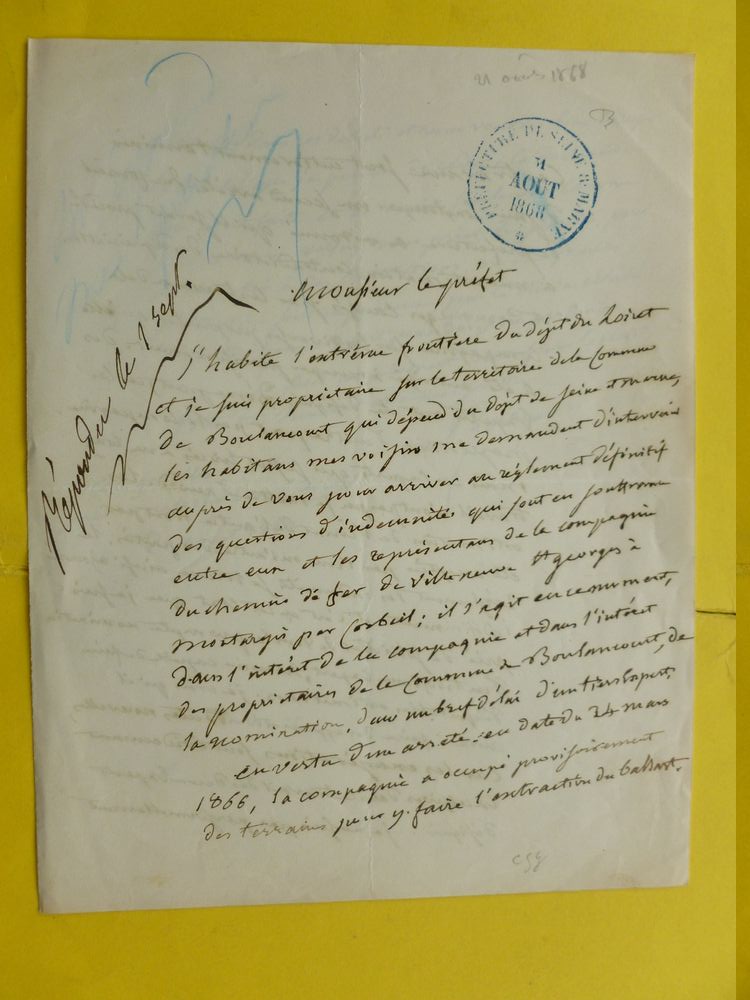 août 1868
PREFECTURE DE SEINE & MARNE
31
AOÛT
1868
Répondu le 1 sept.
Monsieur le préfet
J'habite l'extrême frontière du dépt du Loiret
et je suis propriétaire sur le territoire de la Commune
de Boulancourt qui dépend du dépt de Seine et marne,
les habitans mes voisins me demandent d'intervenir
auprès de vous pour arriver au réglement définitif
des questions d'indemnités qui sont en souffrance
entre eux et les représentans de la compagnie
du chemin de fer de Villeneuve St georges à
montargis par Corbeil; il s'agit en ce moment,
dans l'intérêt de la compagnie et dans l'intérêt
des propriétaires de la Commune de Boulancourt, de
la nomination, dans un bref délai d'un tiers Expert,
en vertu d'un arrêté en date du 24 mars
1866, la compagnie a occupé provisoirement
des terrains pour y faire l'extraction du ballast.